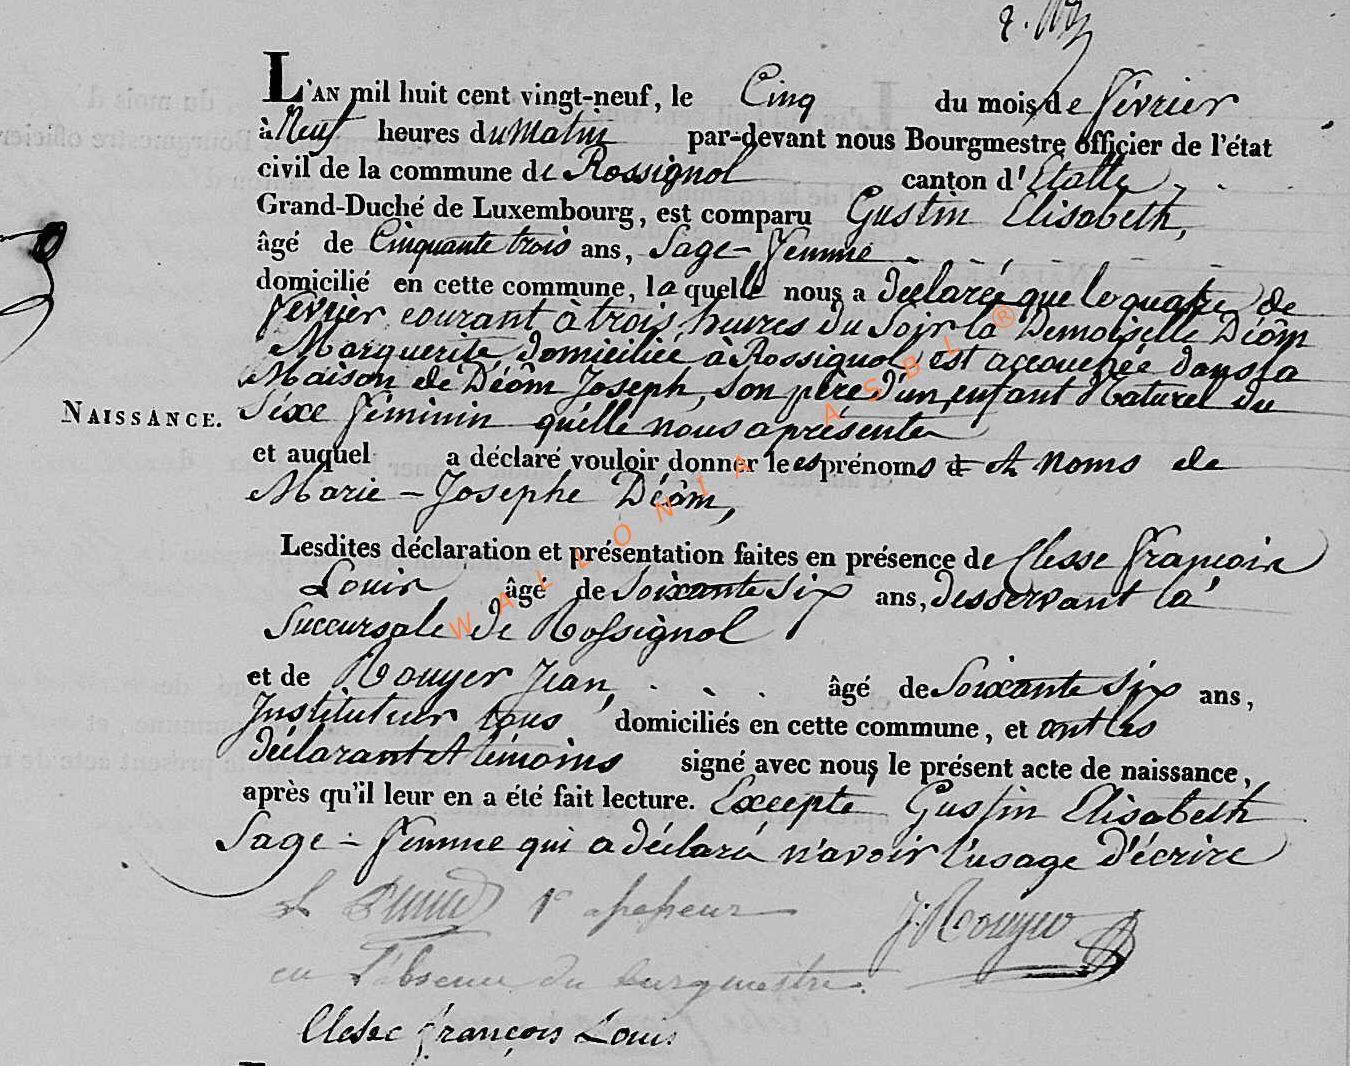 L'AN mil huit cent vingt-neuf, le Cinq du mois de février
à Neuf heures du Matin par-devant nous Bourgmestre officier de l'état
civil de la commune de Rossignol canton d'Etalle
Grand-Duché de Luxembourg, est comparu Gustin Elisabeth,
âgé de Cinquante trois ans, Sage-femme
domicilié en cette commune, la quelle nous a déclarée que le quatre de
février courant à trois heures du Soir la Demoiselle Déôm
Marguerite, domiciliée à Rossignol, est accouchée dans la
Maison de Déôm Joseph, son père d'un enfant Naturel du
Sexe féminin quélle nous a présenté
NAISSANCE.
et auquel a déclaré vouloir donner les prénoms et noms de
Marie-Josephe Déôm,
Lesdites déclaration et présentation faites en présence de Clesse françois
Louis âgé de Soixante Six ans, desservant la
Succursale de Rossignol
et de Rouyer Jean, âgé de Soixante Six ans,
Instituteur tous domiciliés en cette commune, et ont les
déclarant et témoins signé avec nous le présent acte de naissance,
après qu'il leur en a été fait lecture. Excepté Gustin Elisabeth
Sage-femme qui a déclaré n'avoir l'usage d'écrire
1er assesseur J. Rouyer
en l'absence du burgmestre.
Clesse françois Louis
WALLONIA ASBL ®